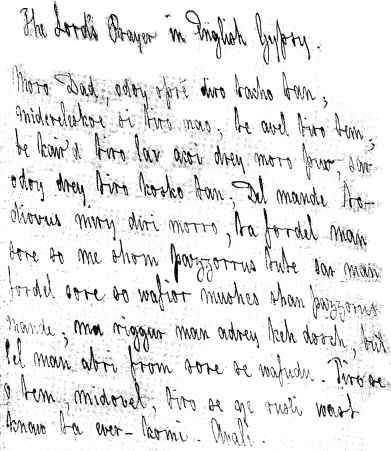 The Lord's Prayer in English Gypsy.
Moro Dad, odoy opré tiro tatcho tan;
miduveleskoe si tiro nav; te avel tiro tem,
te kair'd tiro lav acoi drey moro puv, sar
odoy drey tiro kosko tan; Del mande to-
divvus miry diri morro, ta fordel man
sore so me shom pazzorrus tute sar man
fordel sore so wafior mushes shan pazzorrus
mande; ma riggur man adrey kek dosch, but
lel man abri from sore se wafudu. Tiro se
o tem, midovel, tiro se o ruslí wast
knaw ta ever-komi. Avali.